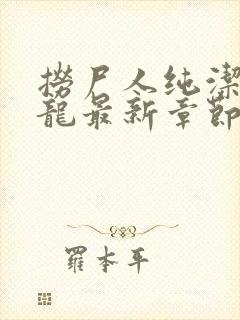 撈尸人纯潔
龍最新章節
羅本平